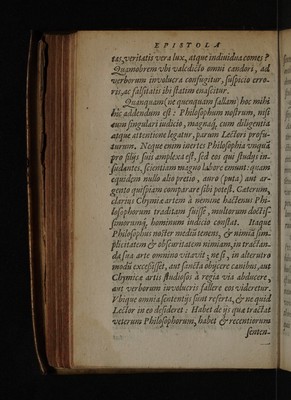 EPISTOLA
tas, veritatis vera lux, atque individua comes?
Quamobrem ubi valedicto omni candori, ad
verborum involucra confugitur, suspicio erro-
ris, ac falsitatis ibi statim enascitur.
Quanquam (ne quenquam fallam) hoc mihi
hic addendum est: Philosophum nostrum, nisi
cum singulari iudicio, magnaq́; cum diligentia
atque attentione legatur, parum Lectori profu-
turum. Neque enim inertes Philosophia unquã
pro filijs suis amplexa est, sed eos qui studijs in-
sudantes, scientiam magno labore emunt: quam
equidem nullo alio pretio, auro (puta) aut ar-
gento quispiam comparare sibi potest. Cæterum,
clarius Chymiæ artem à nemine hactenus Phi-
losophorum traditam fuisse, multorum doctis-
simorumq́; hominum iudicio constat. Itaque
Philosophus noster mediũ tenens, & nimiã sim-
plicitatem & obscuritatem nimiam, in tractan-
da sua arte omnino vitavit; ne si, in alterutro
modũ excessisset, aut sancta obijcere canibus, aut
Chymicæ artis studiosos à regia via abducere,
aut verborum involucris fallere eos videretur.
Vbique omnia sententijs sunt referta, & ne quid
Lector in eo desideret: Habet de ijs qua tractat
veterum Philosophorum, habet & recentiorum
senten-